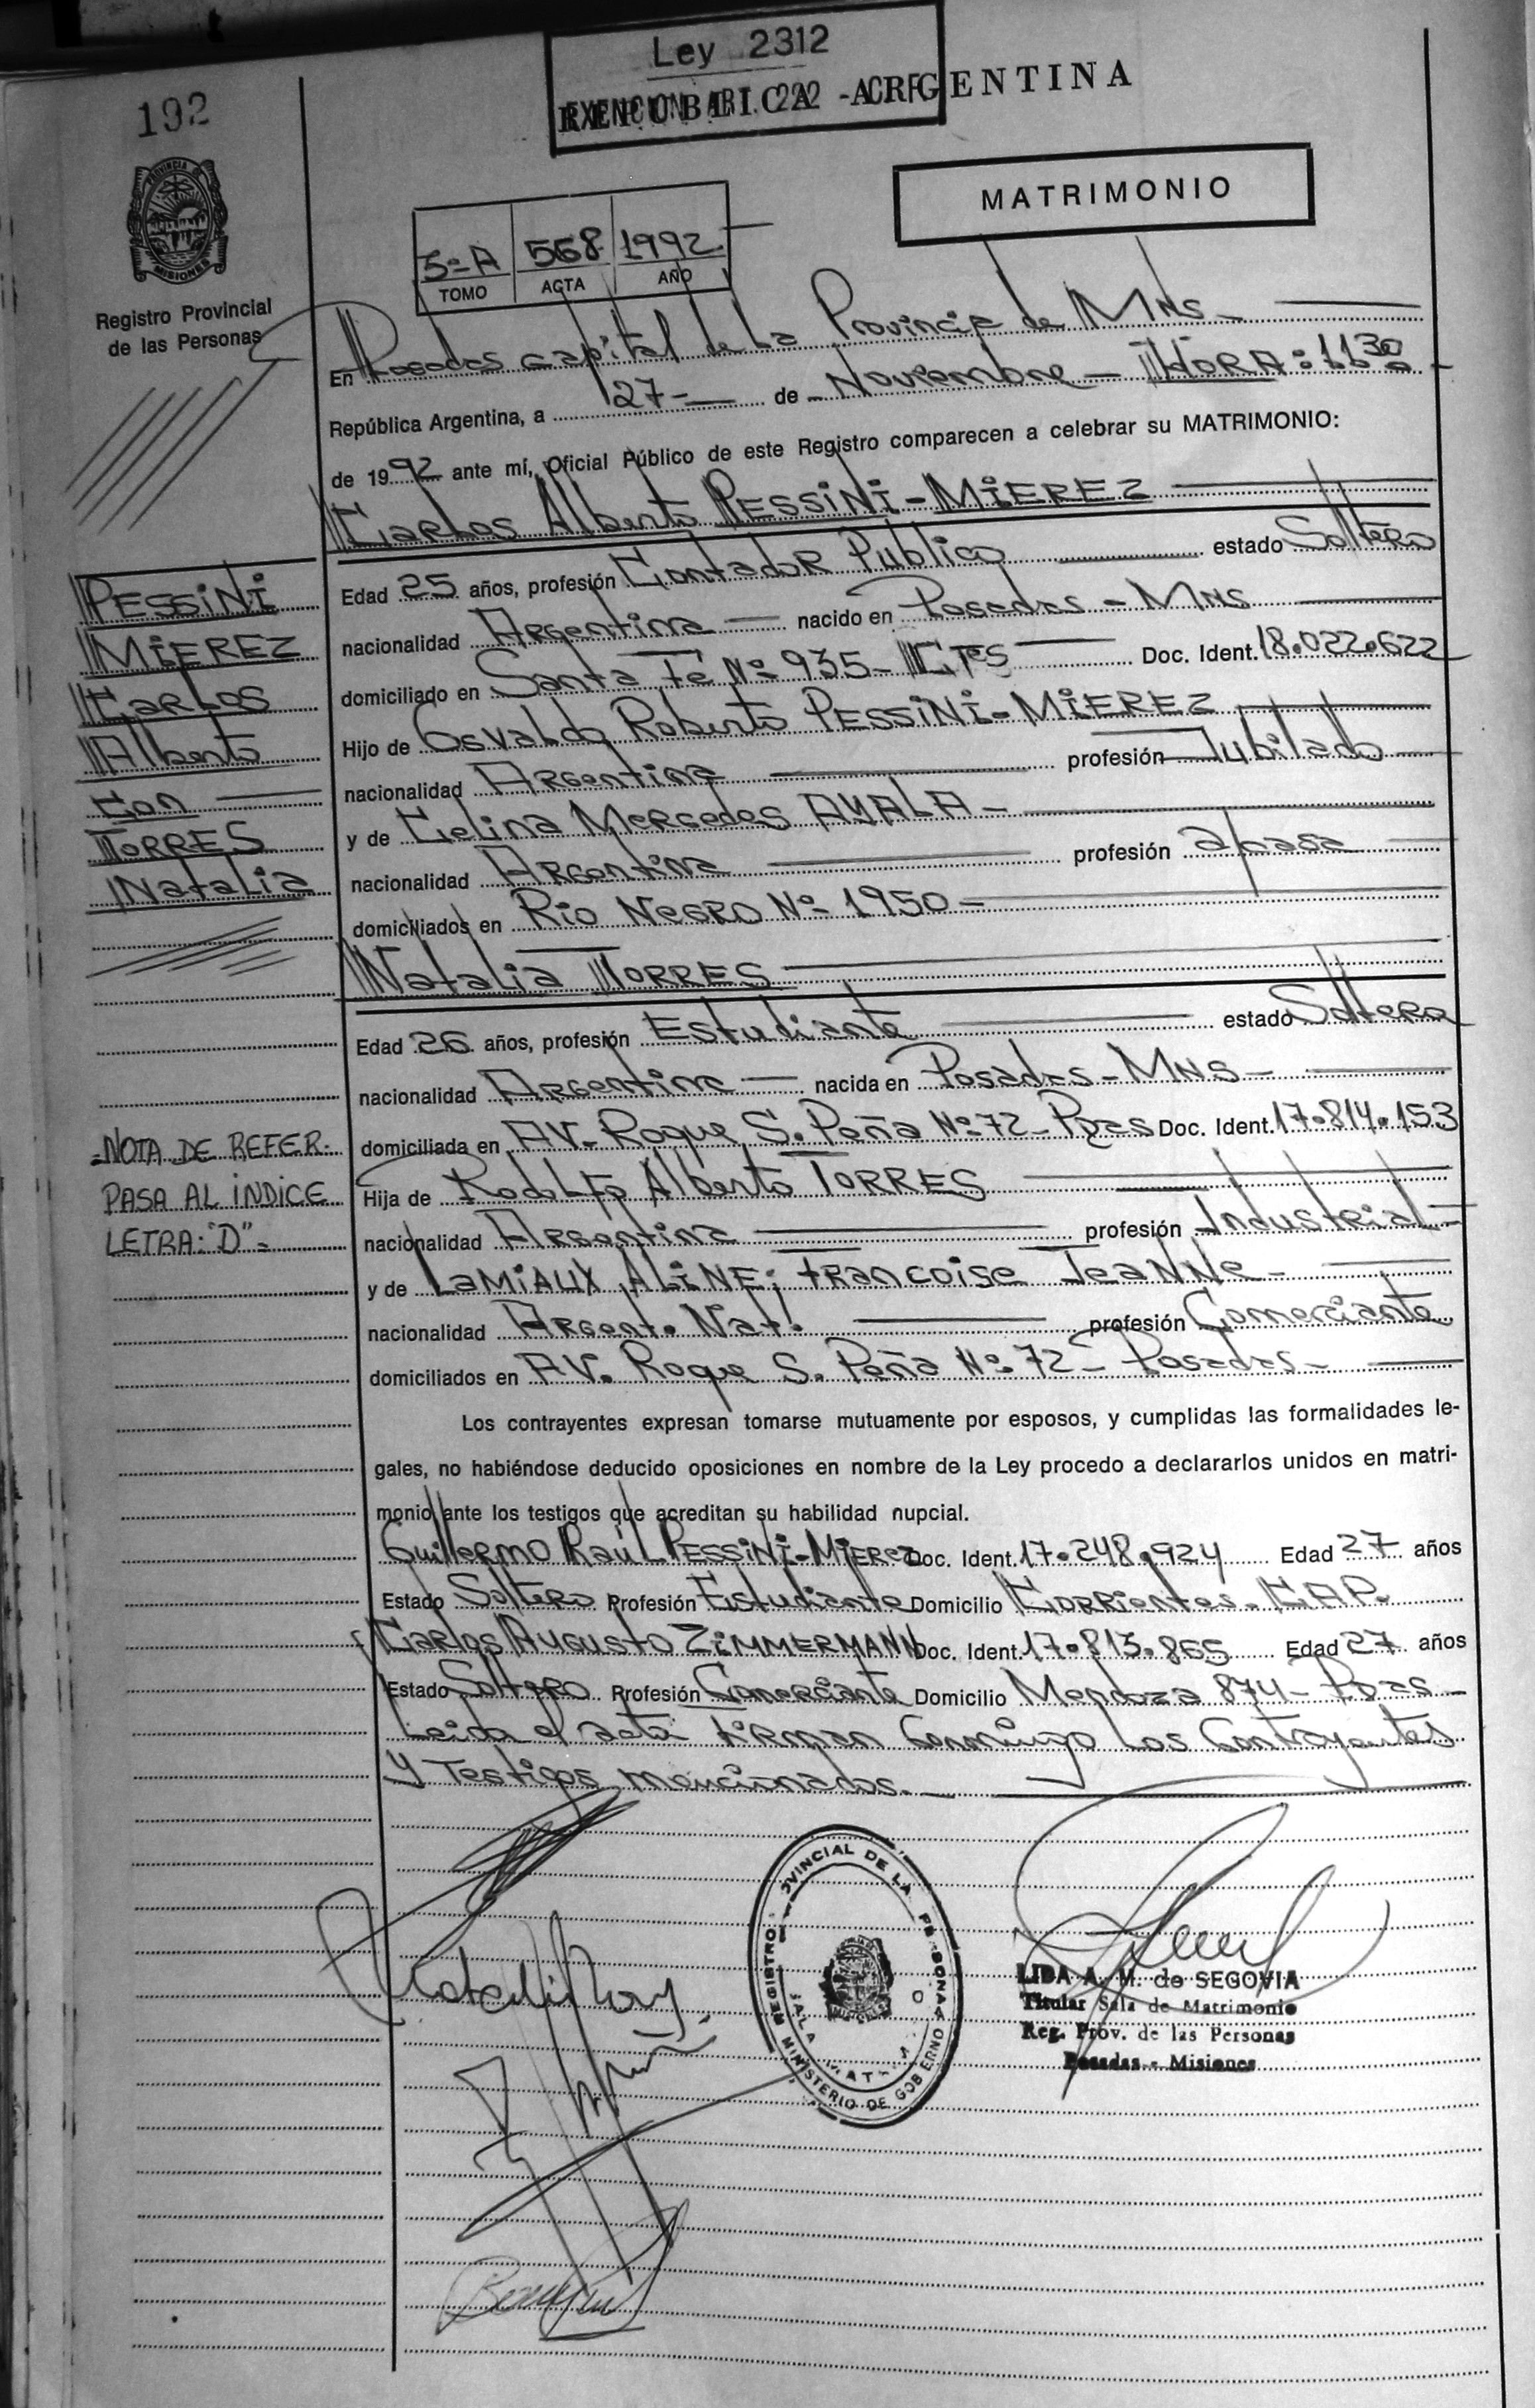 192
Ley 2312
EXENCION ART. 222 - ACRF
REPUBLICA ARGENTINA
MATRIMONIO
PROVINCIA
MISIONES
Registro Provincial
de las Personas
5º A 568 1992
TOMO ACTA AÑO
En Posadas capital de La Provincia de Mns
República Argentina, a 27 de Noviembre - HORA: 1130
de 1992 ante mí, Oficial Público de este Registro comparecen a celebrar su MATRIMONIO:
Carlos Alberto PESSINI-MIEREZ
Edad 25 años, profesión Contador Publico estado Soltero
nacionalidad Argentina nacido en Posadas - Mns
domiciliado en Santa Fé Nº 935 - CTes Doc. Ident. 18.022.622
Hijo de Osvaldo Roberto PESSINI-MIEREZ
nacionalidad Argentina profesión Jubilado
y de Celina Mercedes AYALA -
nacionalidad Argentina profesión acasa
domiciliados en Rio Negro Nº 1950 -
PESSINI
MIEREZ
Carlos
Alberto
Con
TORRES
Natalia
Natalia TORRES
Edad 26 años, profesión Estudiante estado Soltera
nacionalidad Argentina nacida en Posadas - Mns -
domiciliada en AV. Roque S. Peña Nº 72 - Pdas Doc. Ident. 17.814.153
Hija de Rodolfo Alberto TORRES
nacionalidad Argentina profesión Industrial
y de LAMIAUX ALINE; Francoise JeANNe -
nacionalidad Argent. Nat! profesión Comerciante
domiciliados en AV. Roque S. Peña Nº 72 - Posadas -
NOTA DE REFER:
PASA AL INDICE
LETRA: "D" -
Los contrayentes expresan tomarse mutuamente por esposos, y cumplidas las formalidades le-
gales, no habiéndose deducido oposiciones en nombre de la Ley procedo a declararlos unidos en matri-
monio ante los testigos que acreditan su habilidad nupcial.
Guillermo Raúl PESSINI-MIEREZ Doc. Ident. 17.248.924 Edad 27 años
Estado Soltero Profesión Estudiante Domicilio Corrientes. CAP.
Carlos Augusto ZIMMERMANN Doc. Ident. 17.813.865 Edad 27 años
Estado Soltero Profesión Comerciante Domicilio Mendoza 874 - Pdas -
Leida el acta firman conmigo los Contrayentes
y Testigos mencionados.
REGISTRO PROVINCIAL DE LA PERSONA
MINISTERIO DE GOBIERNO
LIDA A. M. de SEGOVIA
Titular Sala de Matrimonio
Reg. Prov. de las Personas
Posadas - Misiones